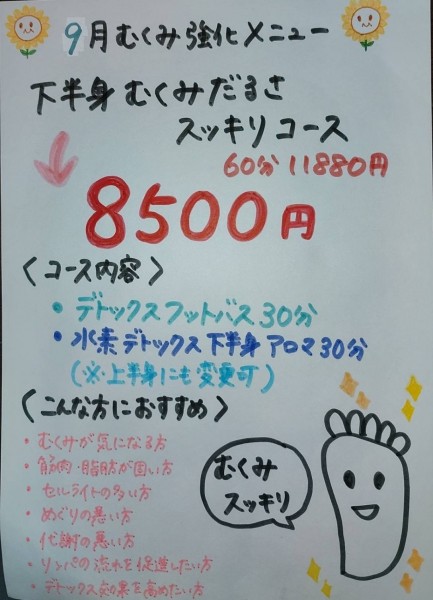 9月むくみ強化メニュー
下半身むくみだるさ
スッキリコース
60分 11880円
8500円
〈コース内容〉
・デトックスフットバス30分
・水素デトックス下半身アロマ30分
(※上半身にも変更可)
〈こんな方におすすめ〉
・むくみが気になる方
・筋肉・脂肪が固い方
・セルライトの多い方
・めぐりの悪い方
・代謝の悪い方
・リンパの流れを促進したい方
・デトックス効果を高めたい方
むくみ
スッキリ